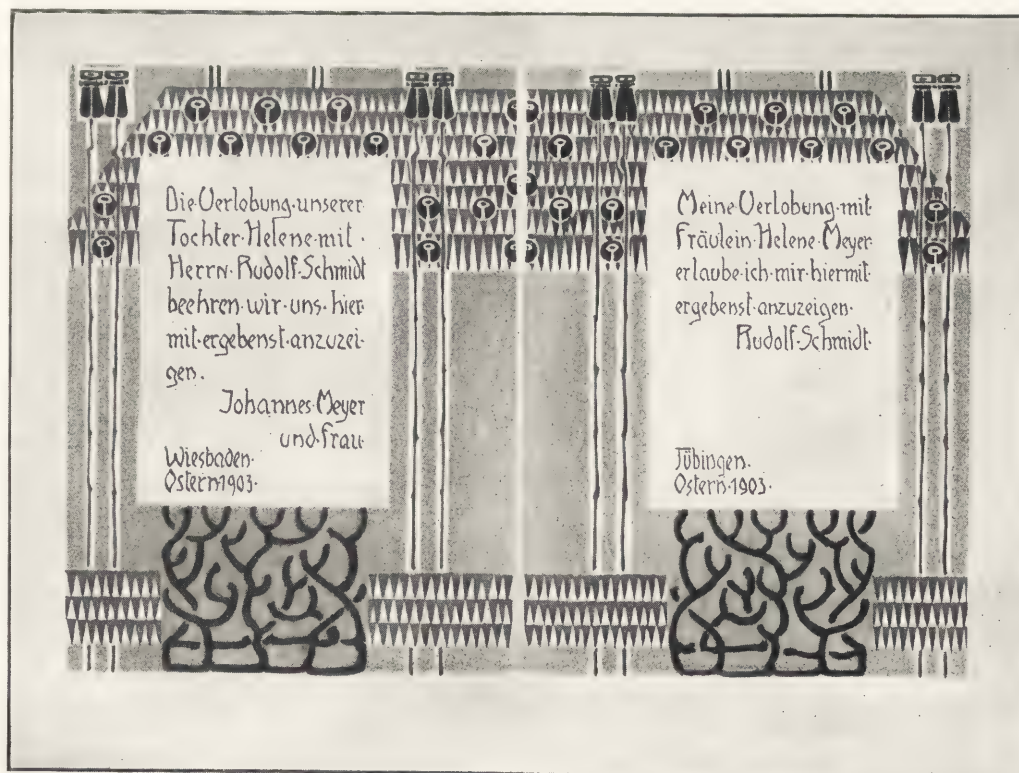 Die·Verlobung·unserer·
Tochter·Helene·mit·
Herrn·Rudolf·Schmidt
beehren·wir·uns·hier
mit·ergebenst·anzuzei-
gen.
Johannes·Meyer
und·Frau·
Wiesbaden·
Ostern·1903·
Meine·Verlobung·mit·
Fräulein·Helene·Meyer·
erlaube·ich·mir·hiermit·
ergebenst·anzuzeigen·
Rudolf·Schmidt·
Tübingen·
Ostern·1903·